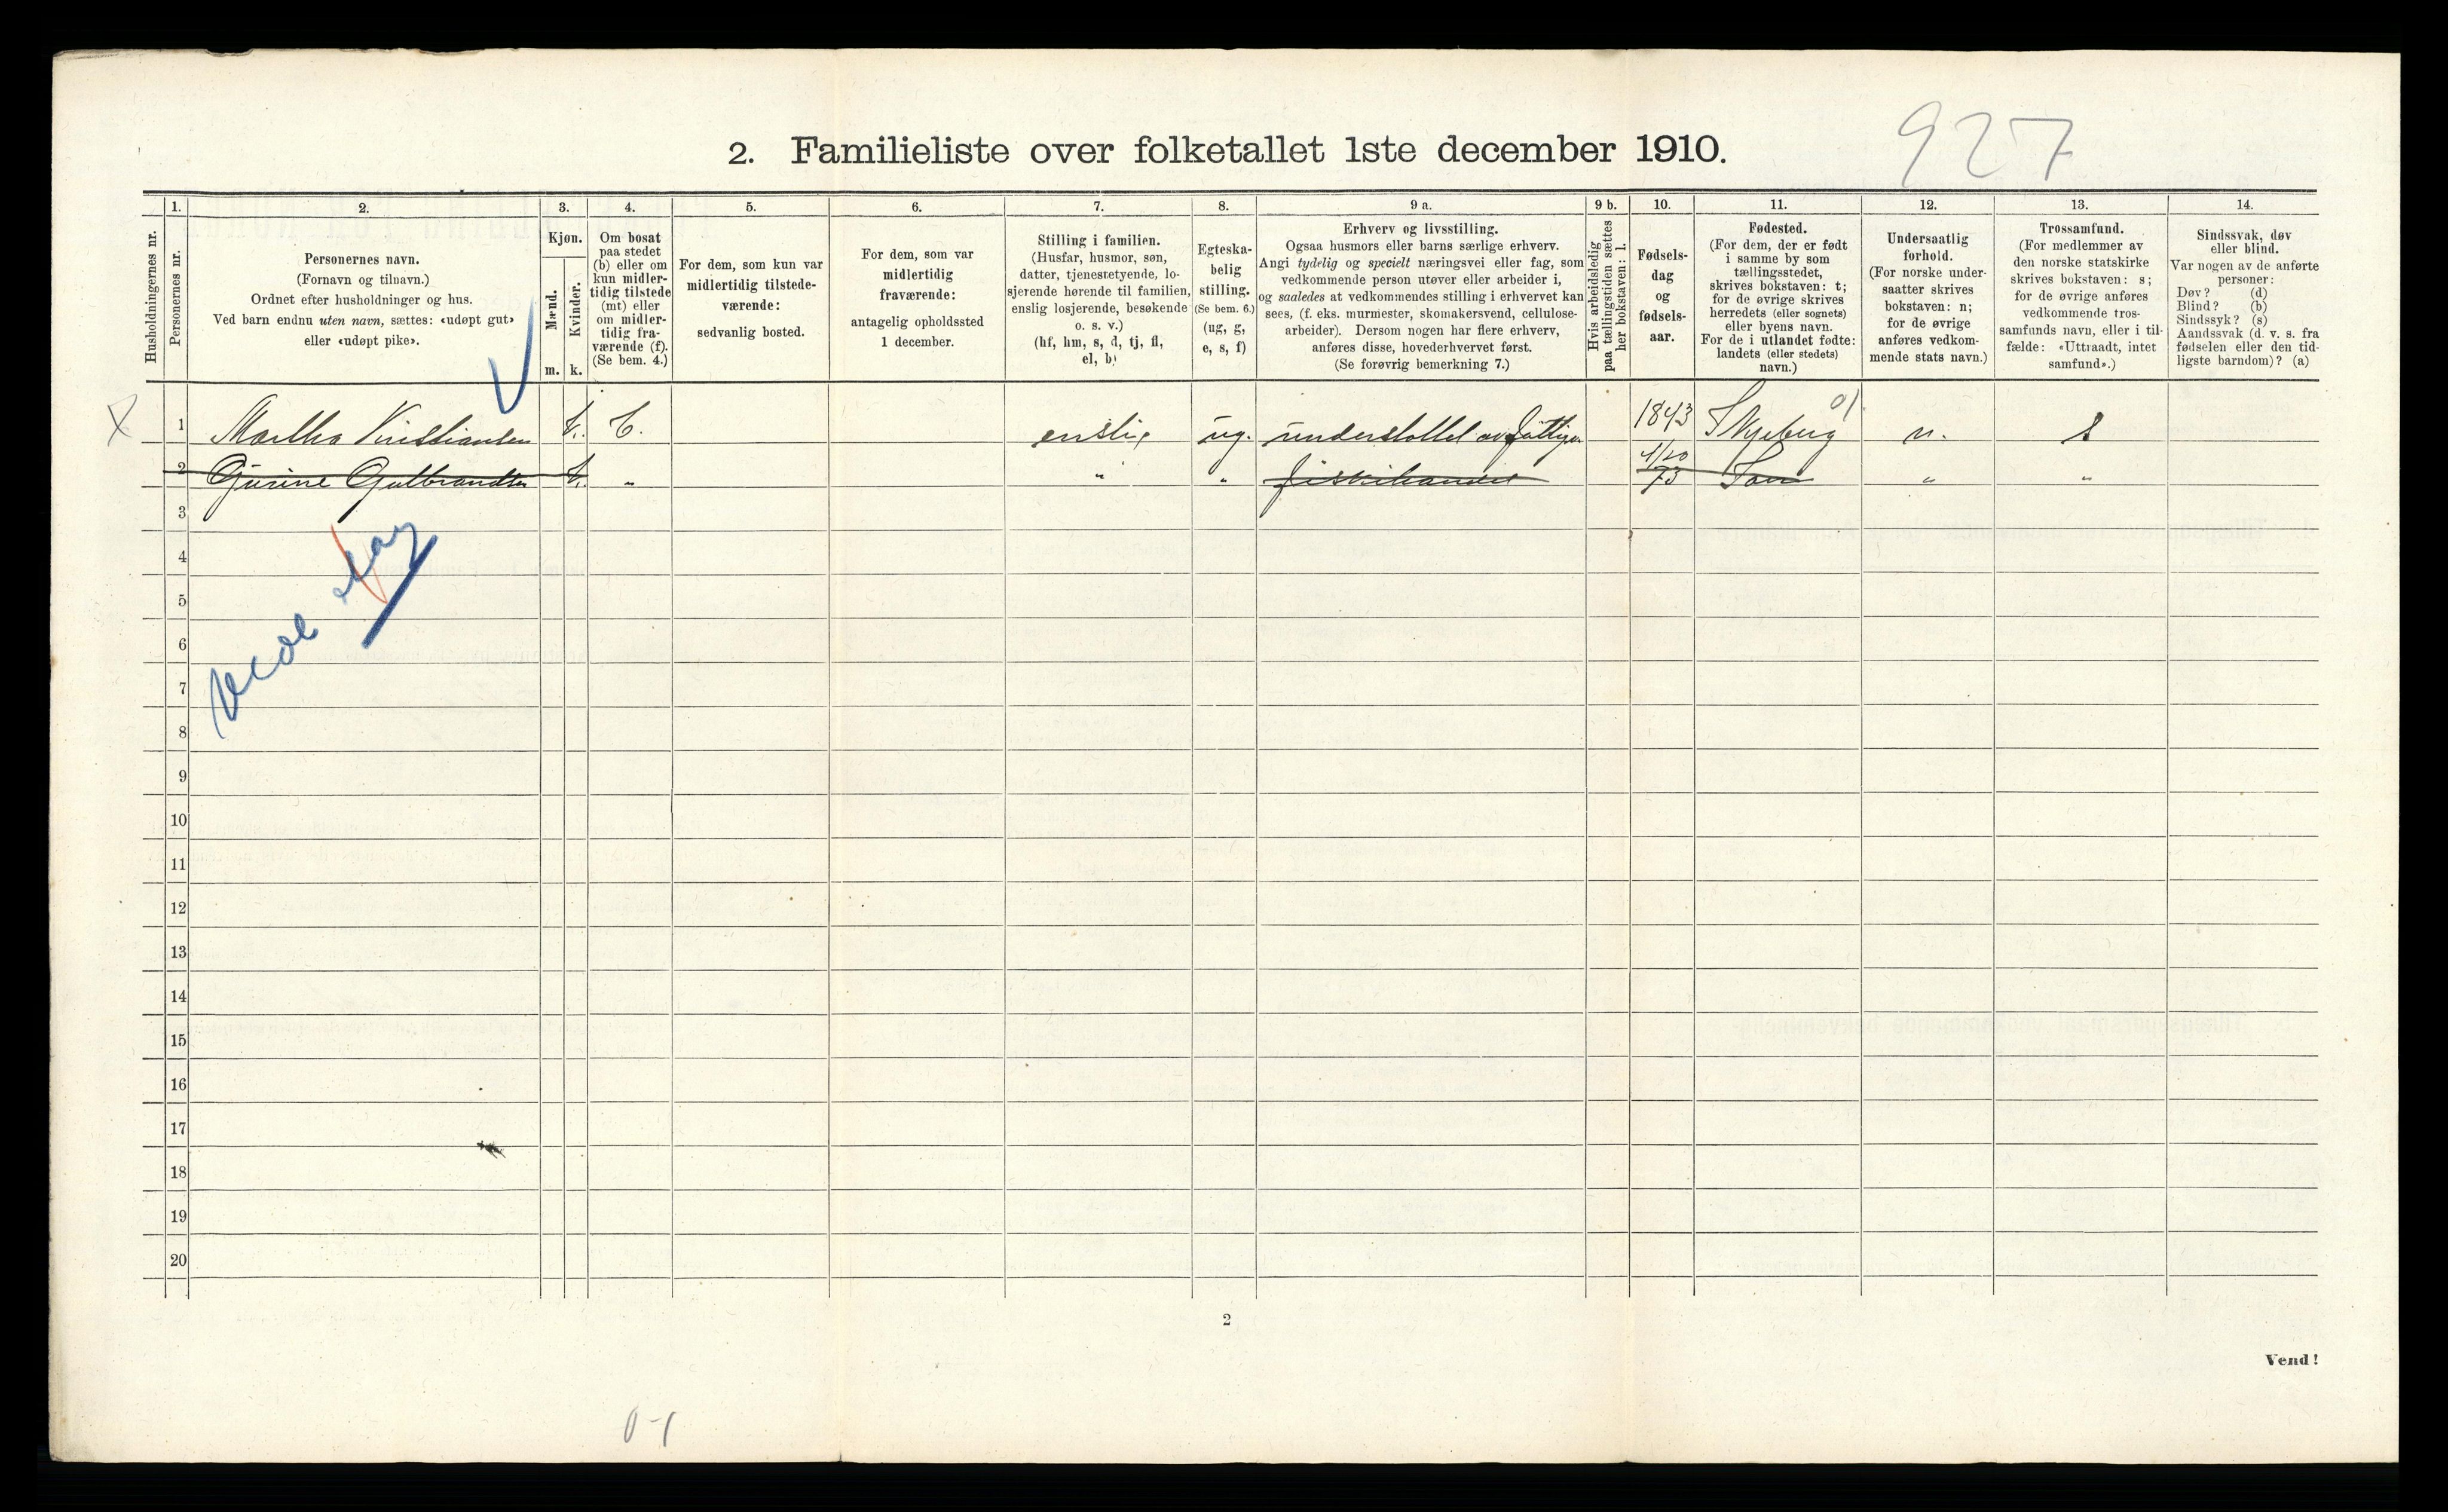 927
2. Familieliste over folketallet 1ste december 1910.
Husholdningernes nr.
1.
Personernes nr.
2.
Personernes navn.
(Fornavn og tilnavn.)
Ordnet efter husholdninger og hus.
Ved barn endnu uten navn, sættes: «udøpt gut»
eller «udøpt pike».
3.
Kjøn.
Mænd.
Kvinder.
m.
k.
4.
Om bosat
paa stedet
(b) eller om
kun midler-
tidig tilstede
(mt) eller
om midler-
tidig fra-
værende (f).
(Se bem. 4.)
5.
For dem, som kun var
midlertidig tilstede-
værende:
sedvanlig bosted.
6.
For dem, som var
midlertidig
fraværende:
antagelig opholdssted
1 december.
7.
Stilling i familien.
(Husfar, husmor, søn,
datter, tjenestetyende, lo-
sjerende hørende til familien,
enslig losjerende, besøkende
o. s. v.)
(hf, hm, s, d, tj, fl,
el, b)
8.
Egteska-
belig
stilling.
(Se bem. 6.)
(ug, g,
e, s, f)
9 a.
Erhverv og livsstilling.
Ogsaa husmors eller barns særlige erhverv.
Angi tydelig og specielt næringsvei eller fag, som
vedkommende person utøver eller arbeider i,
og saaledes at vedkommendes stilling i erhvervet kan
sees, (f. eks. murmester, skomakersvend, cellulose-
arbeider). Dersom nogen har flere erhverv,
anføres disse, hovederhvervet først.
(Se forøvrig bemerkning 7.)
9 b.
Hvis arbeidsledig
paa tællingstiden sættes
her bokstaven: l.
10.
Fødsels-
dag
og
fødsels-
aar.
11.
Fødested.
(For dem, der er født
i samme by som
tællingsstedet,
skrives bokstaven: t;
for de øvrige skrives
herredets (eller sognets)
eller byens navn.
For de i utlandet fødte:
landets (eller stedets)
navn.)
12.
Undersaatlig
forhold.
(For norske under-
saatter skrives
bokstaven: n;
for de øvrige
anføres vedkom-
mende stats navn.)
13.
Trossamfund.
(For medlemmer av
den norske statskirke
skrives bokstaven: s;
for de øvrige anføres
vedkommende tros-
samfunds navn, eller i til-
fælde: «Uttraadt, intet
samfund».)
14.
Sindssvak, døv
eller blind.
Var nogen av de anførte
personer:
Døv? (d)
Blind? (b)
Sindssyk? (s)
Aandssvak (d. v. s. fra
fødselen eller den tid-
ligste barndom)? (a)
X 1 Martha Kristiansen k. b. enslig ug. understøttet av fattigv 1843 Skjeberg 01 n. s
2 Gurine Gulbrandsen k. " " " fiskehandel 4/10 73 Son " "
3
4
5
6
7
8
9
10
11
12
13
14
15
16
17
18
19
20
2
Vend!
0-1